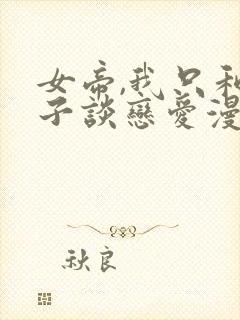 女帝,我只和
子談戀愛漫
秋良